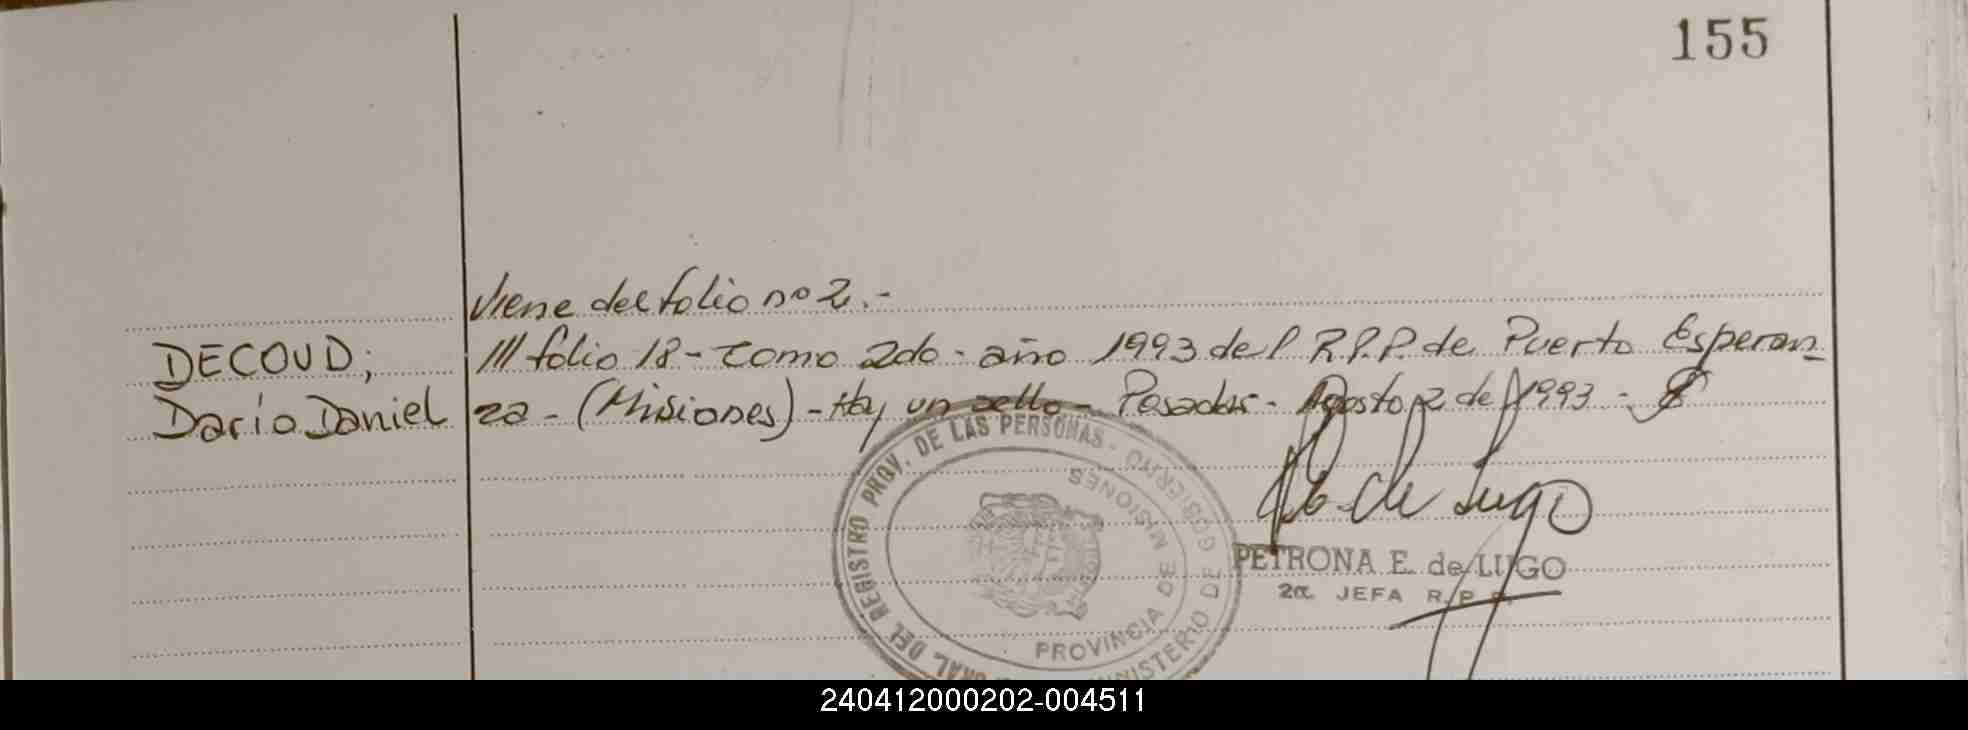 155
Viene del folio nº 2.-
DECOUD; /// folio 18 - tomo 2do - año 1993 del R.P.P. de Puerto Esperan_
Darío Daniel za - (Misiones) - Hay un sello - Posadas - Agosto 2 de 1993 -
DEL REGISTRO PROV. DE LAS PERSONAS - MINISTERIO DE GOBIERNO
PROVINCIA DE MISIONES
de Lugo
PETRONA E. de LUGO
2a. JEFA R.P.
240412000202-004511